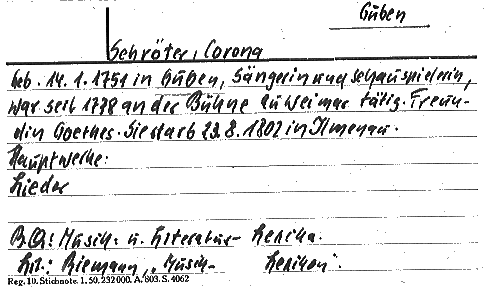 Guben
Schröter, Corona
Geb. 14.1.1751 in Guben, Sängerin und Schauspielerin,
war seit 1778 an der Bühne zu Weimar tätig. Freun-
din Goethes. Sie starb 23.8.1802 in Ilmenau.
Hauptwerke:
Lieder
B.Qu: Musik- u. Literatur- Lexika.
Lit.: Riemann, „Musik- Lexikon".
Reg. 10. Stichnote. 1. 50. 232 000. A. 803. S. 4062